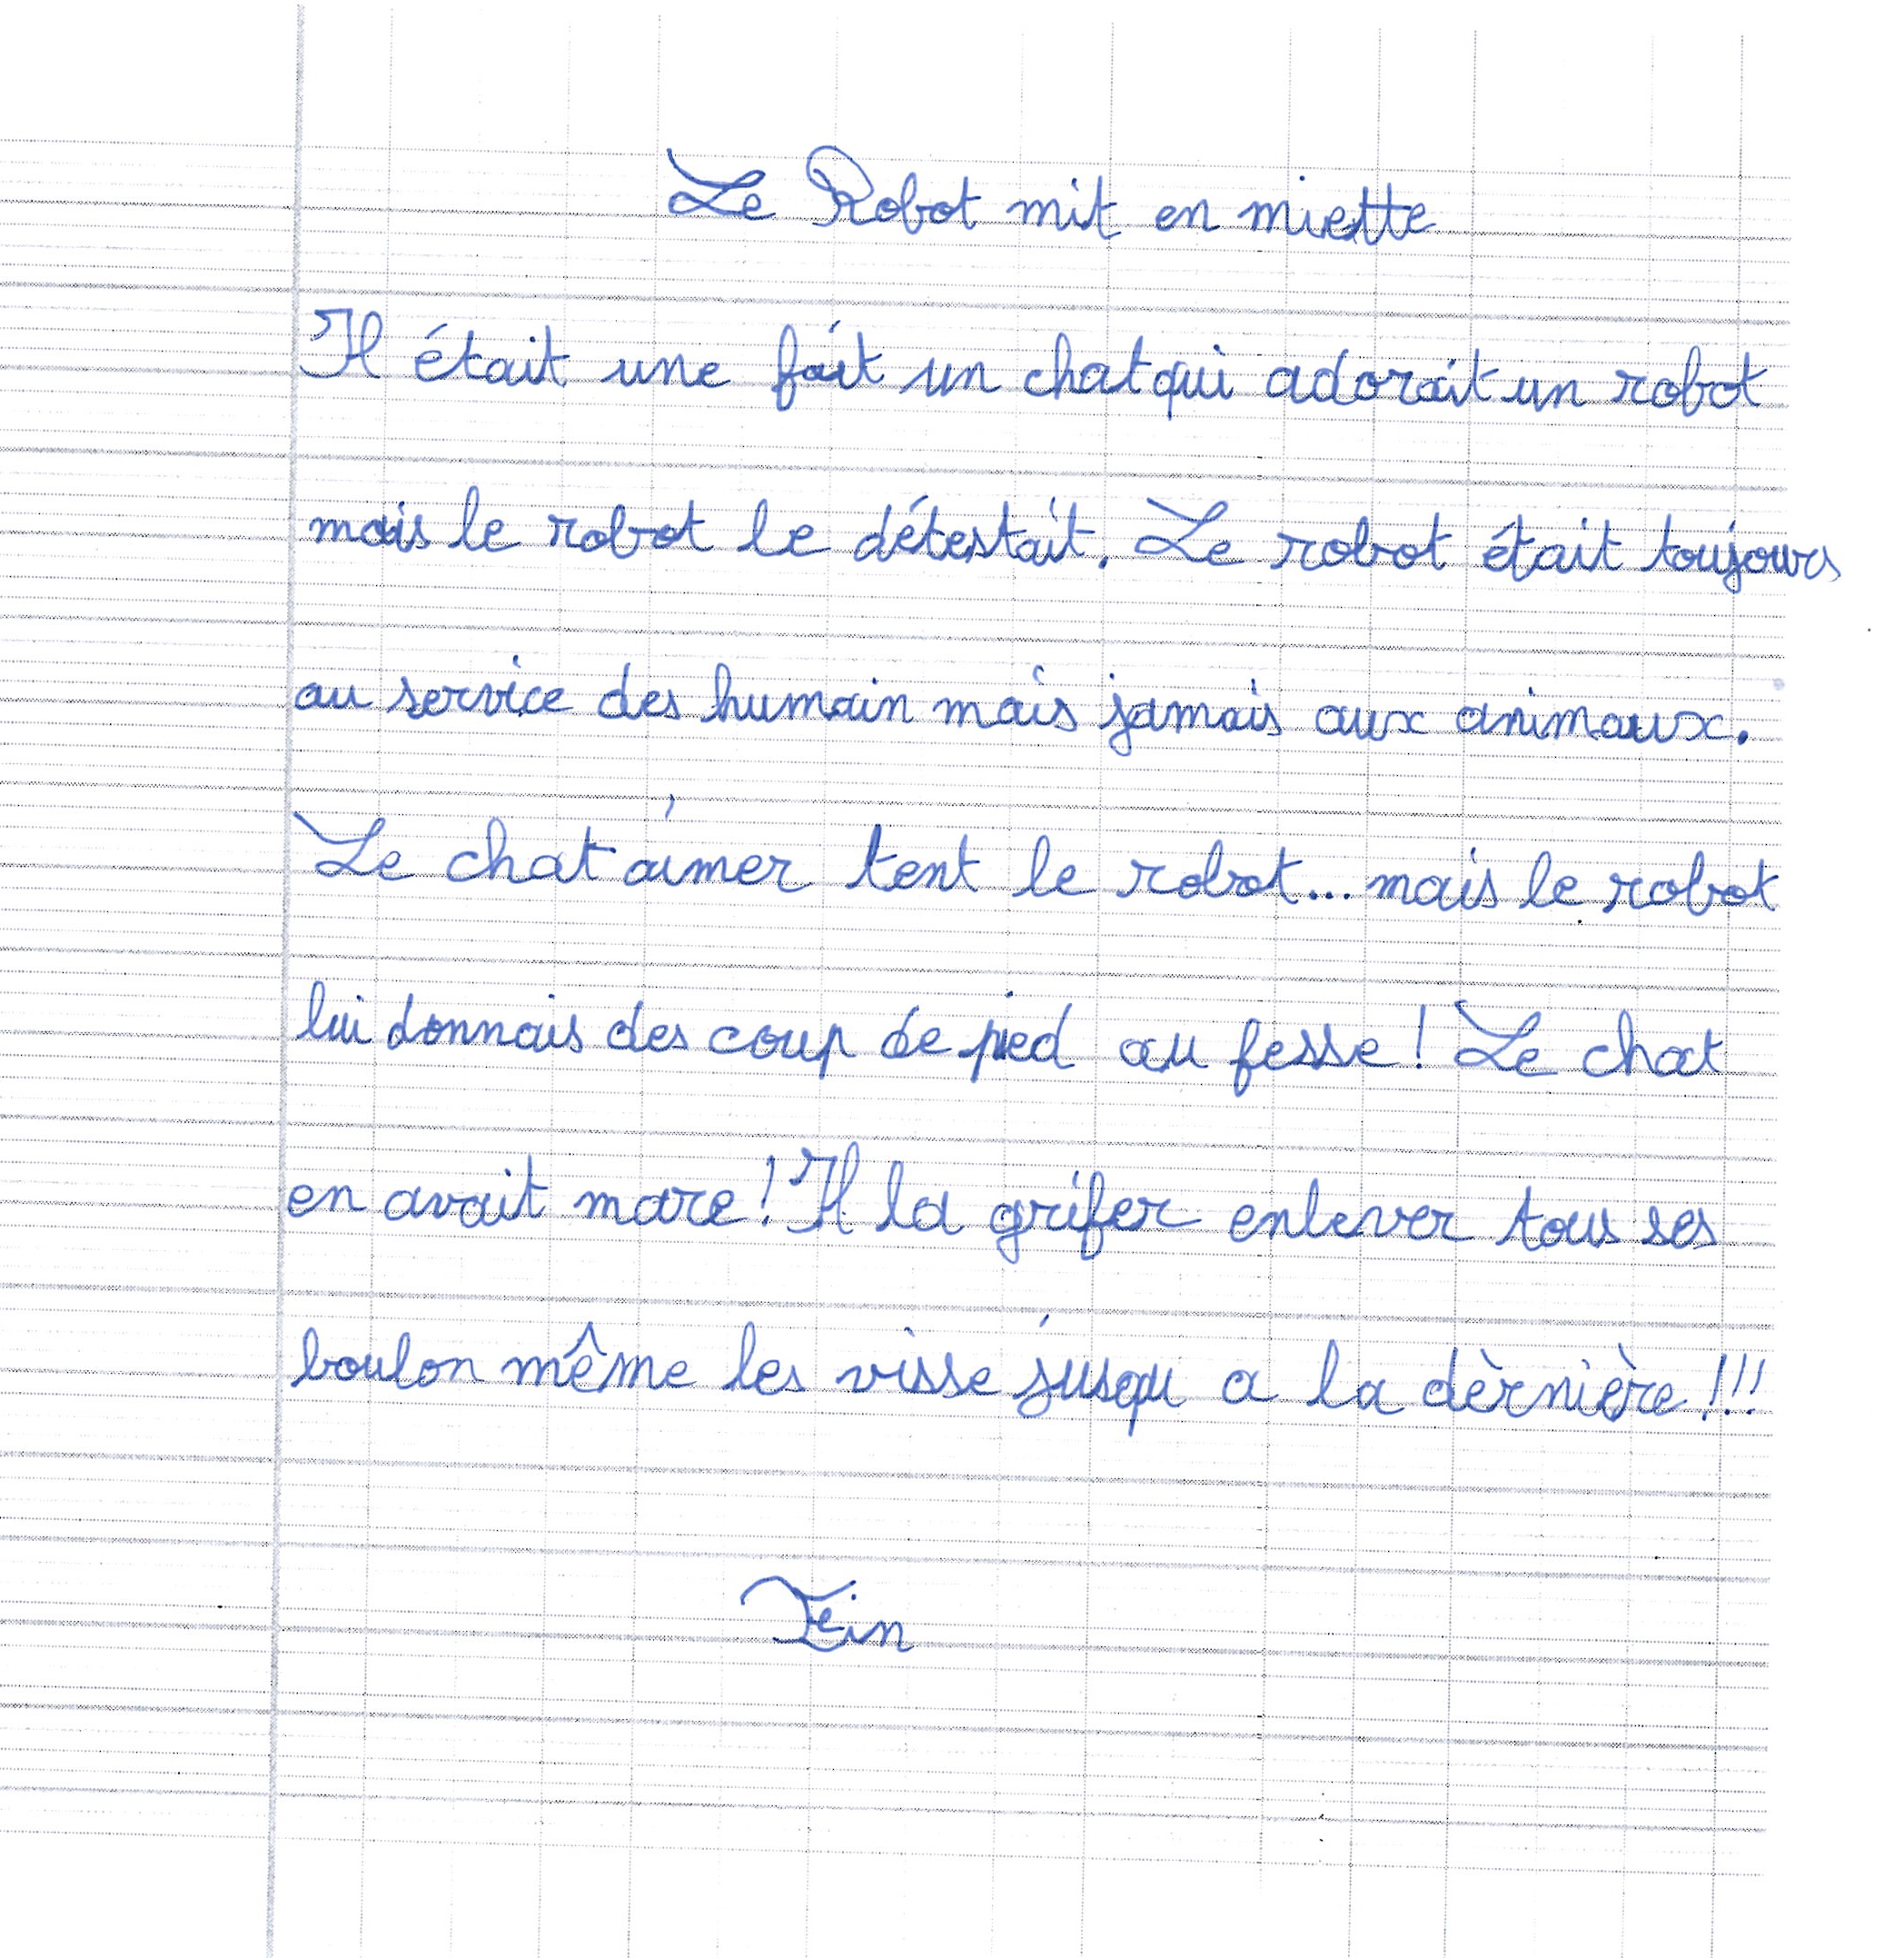 Le Robot mit en miette
Il était une fait un chat qui adorait un robot
mais le robot le détestait. Le robot était toujours
au service des humain mais jamais aux animaux.
Le chat aimer tent le robot... mais le robot
lui donnais des coup de pied au fesse ! Le chat
en avait mare ! Il la grifer enlever tous ses
boulon même les visse jusqu a la dèrnière !!!
Fin